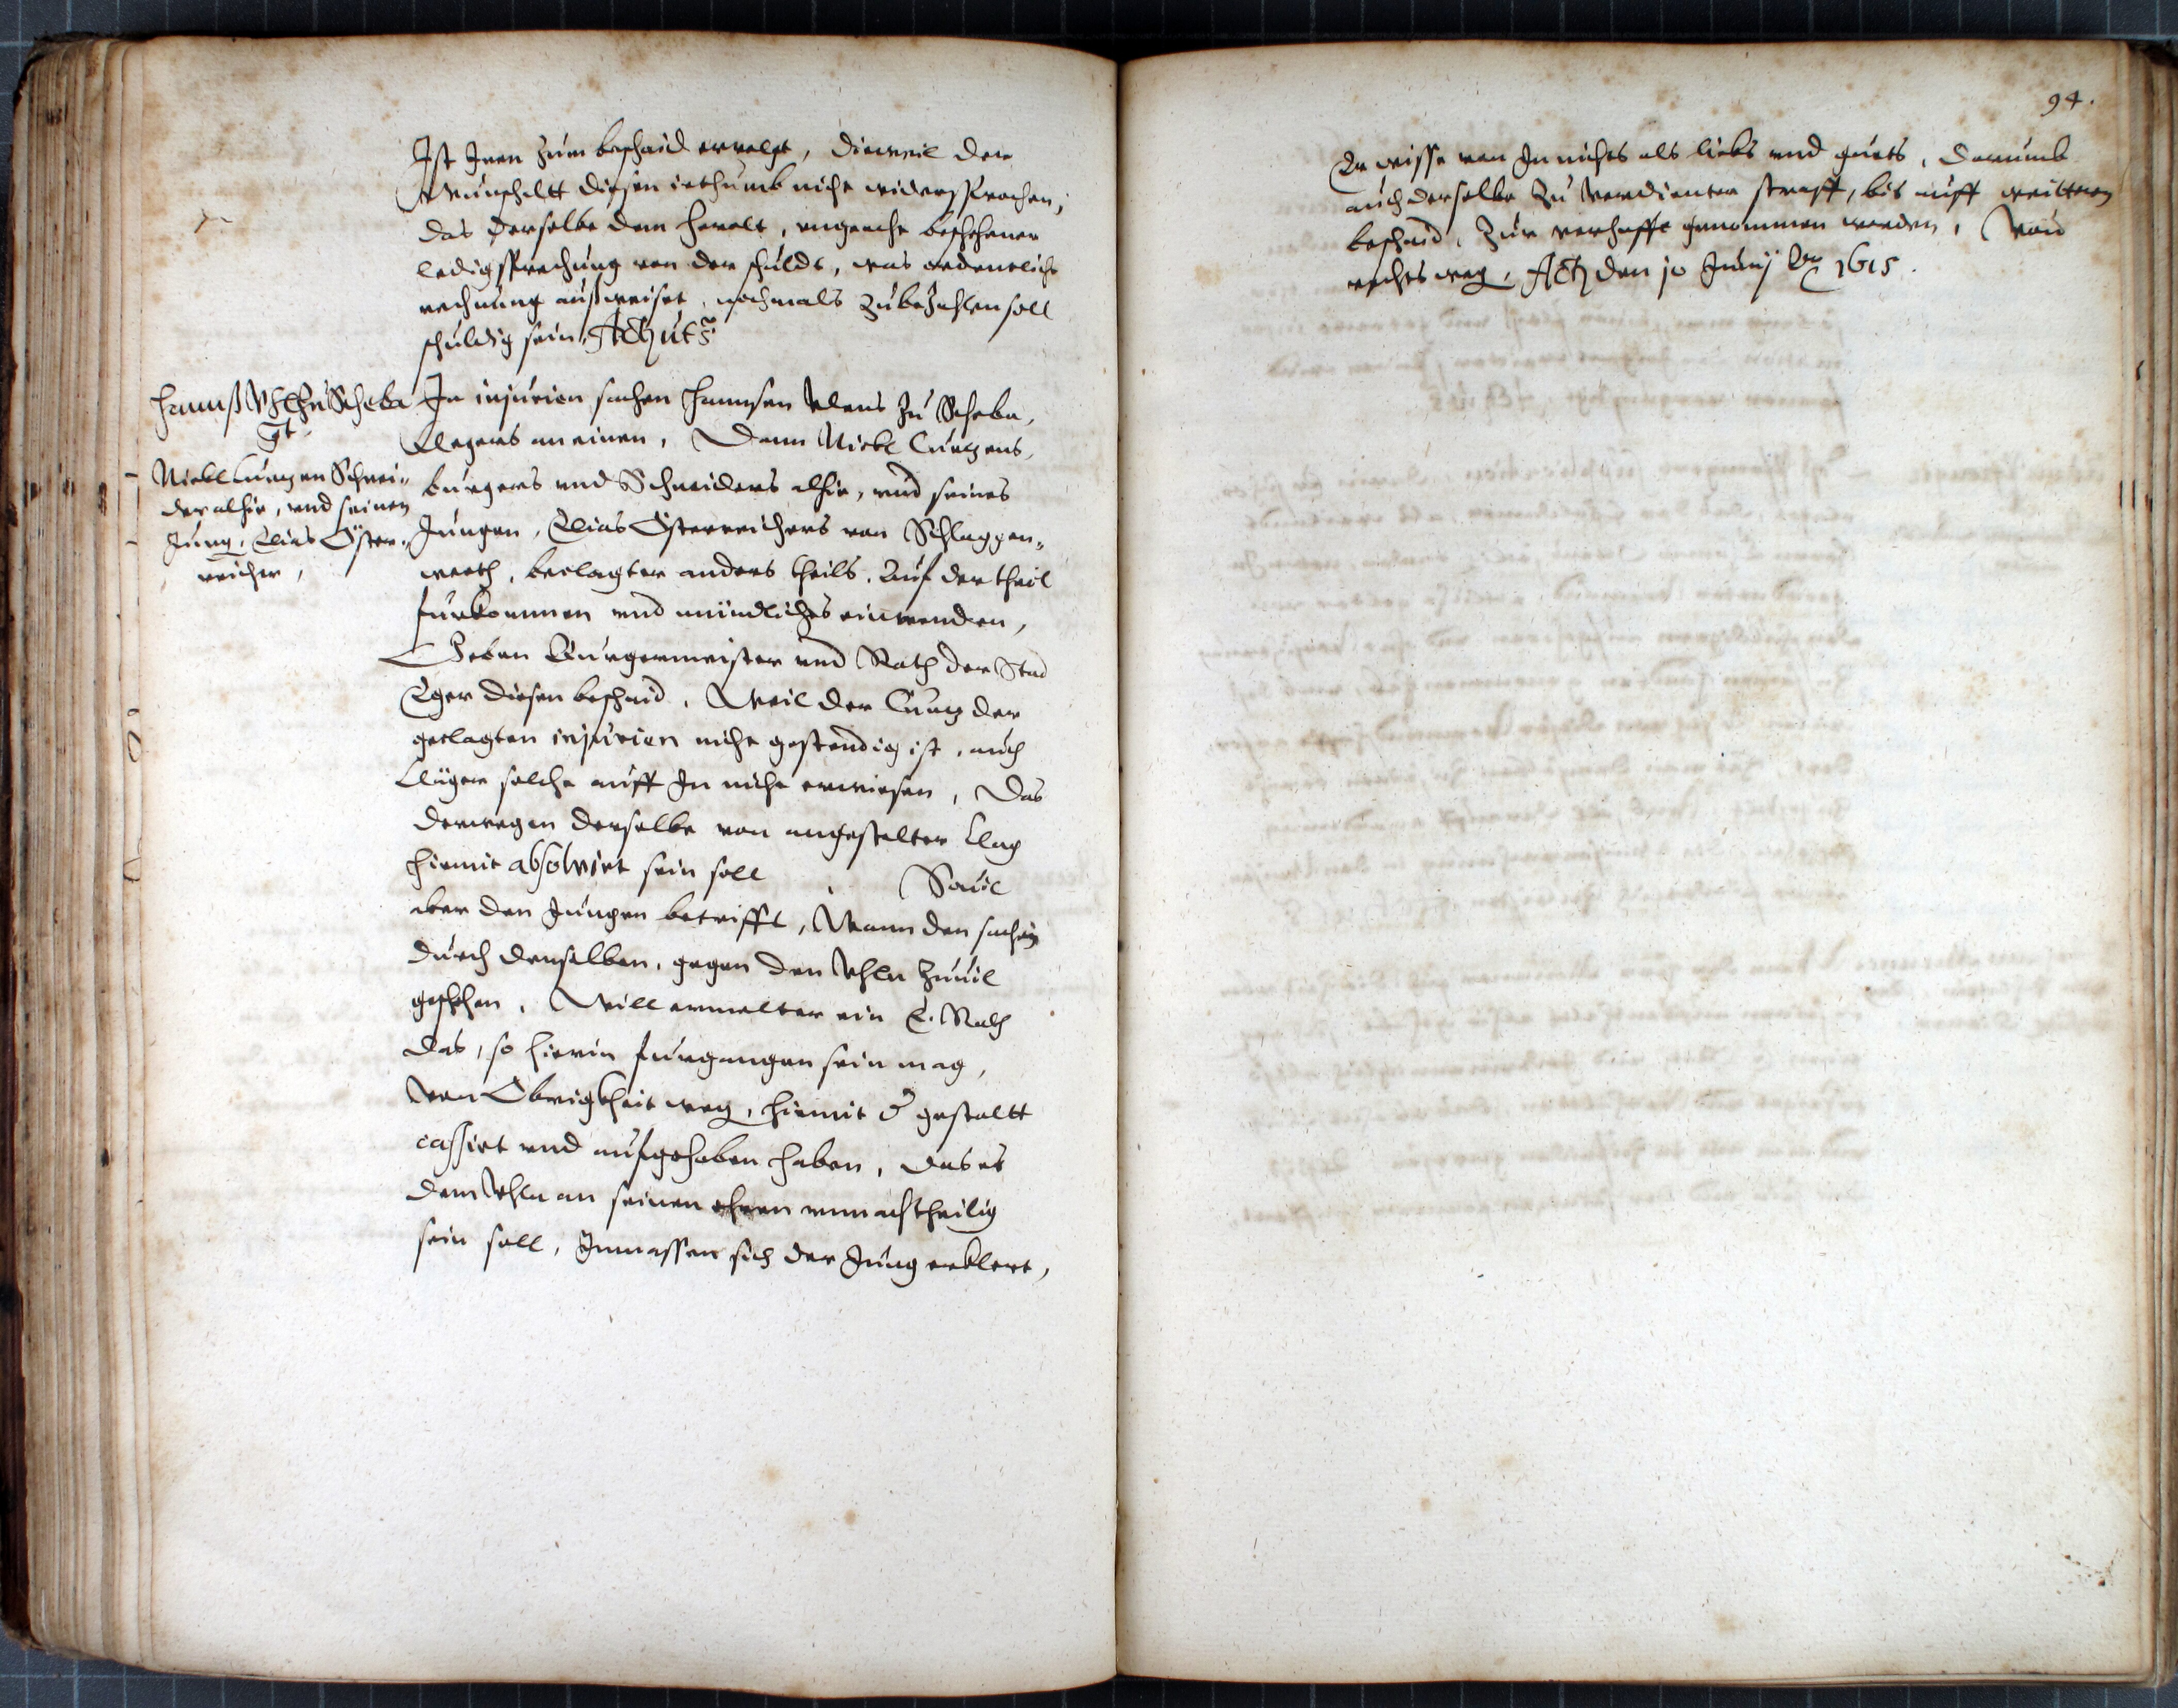 Ist Inen zum beschaid ervolgt, dieweil der
Wunschltt diesen irthumb nicht widersprochen,
das derselbe dem Herolt, ungeacht beschehener
ledigsprechung von der schuldt, was ordentliche
rechnung außweiset, nochmals zubezahlen soll
schuldig sein, Actu ut s.
Hannß Uhl zu Scheba
gt.
Nickl Cunzen Schnei-
der alhie, und seinen
Jung, Elias Öster-
reicher,
In injurien sachen Hannsen Ulens zu Scheba,
Clegers an einen, Dann Nickl Cuntzens,
burgers und Schneiders alhie, und seines
Jungen, Elias Österreichers von Schlaggen-
werth, beclagter anders theils. Auf der theil
furkommen und mündliches einwenden,
Geben Burgermeister und Rath der Stad
Eger diesen beschaid, Weil der Cunz der
geclagten injurien nicht gestendig ist, auch
Cläger solche auff In nicht erwiesen, Das
derwegen derselbe von angestelter Clag
hiemit absolvirt sein soll. Sovil
aber den Jungen betrifft, Wann den sachen
durch denselben, gegen den Uhln zuvil
geschehen, Will ermelter ein E. Rath
das, so hierin furgangen sein mag,
von Obrigkheit weg, hiemit dergestaltt
cassirt und aufgehoben haben, das es
dem Uhln an seinen ehren unnachtheilig
sein soll, Inmassen sich der Jung erklert,
94.
Er wisse von In nichts als liebs und guets, darumb
auch derselbe zu verdienter straff, bis auff weittern
beschaid, zur verhafft genommen worden, Von
rechts weg, Actu den 10 Junij Ao 1615.